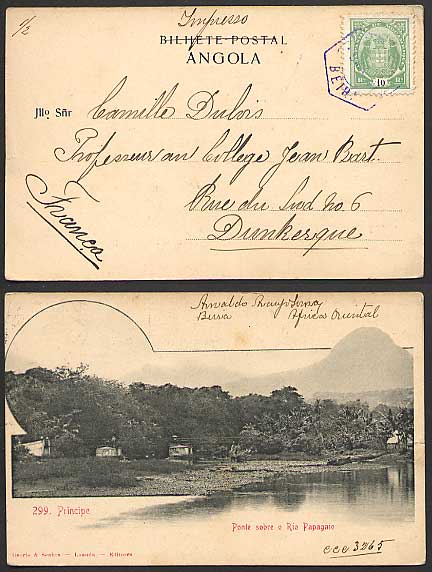 1/2
Impresso
BILHETE POSTAL
ANGOLA
10
BEIR
Jllo Sñr Camille Dubois
Professeur au College Jean Bart.
Rue du Sud no. 6
Dunkerque
França
Arnaldo
Beira Africa Oriental
299. Principe
Ponte sobre o Rio Papagaio
Osorio & Seabra — Loanda — Editores
cce 3265